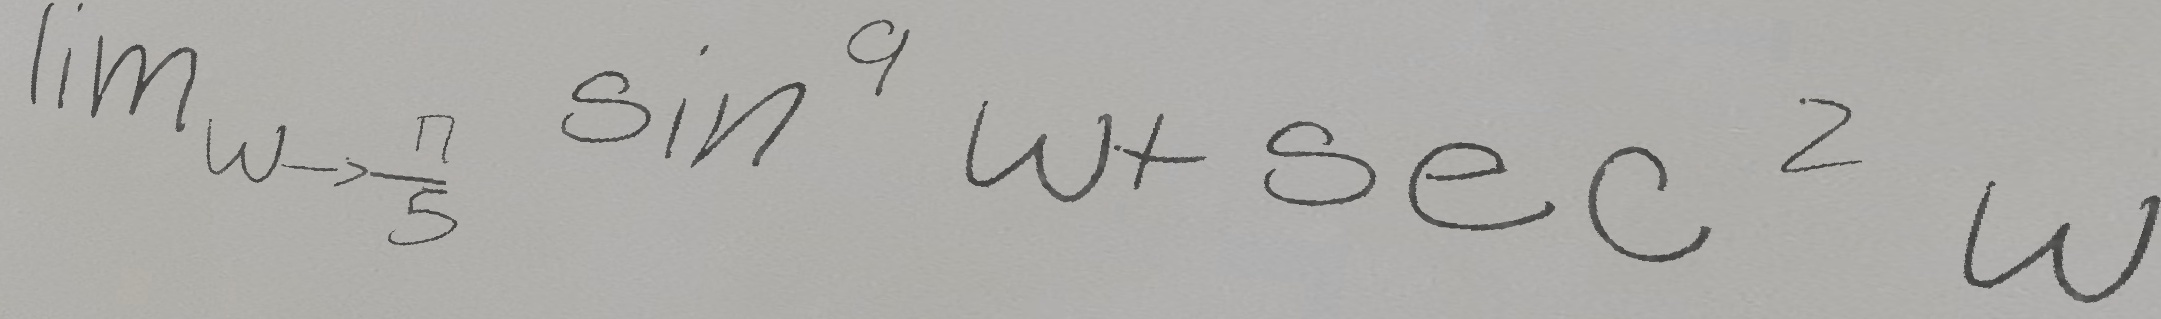 lim_{w→\frac{π}{5}} sin^9 w + sec^2 w